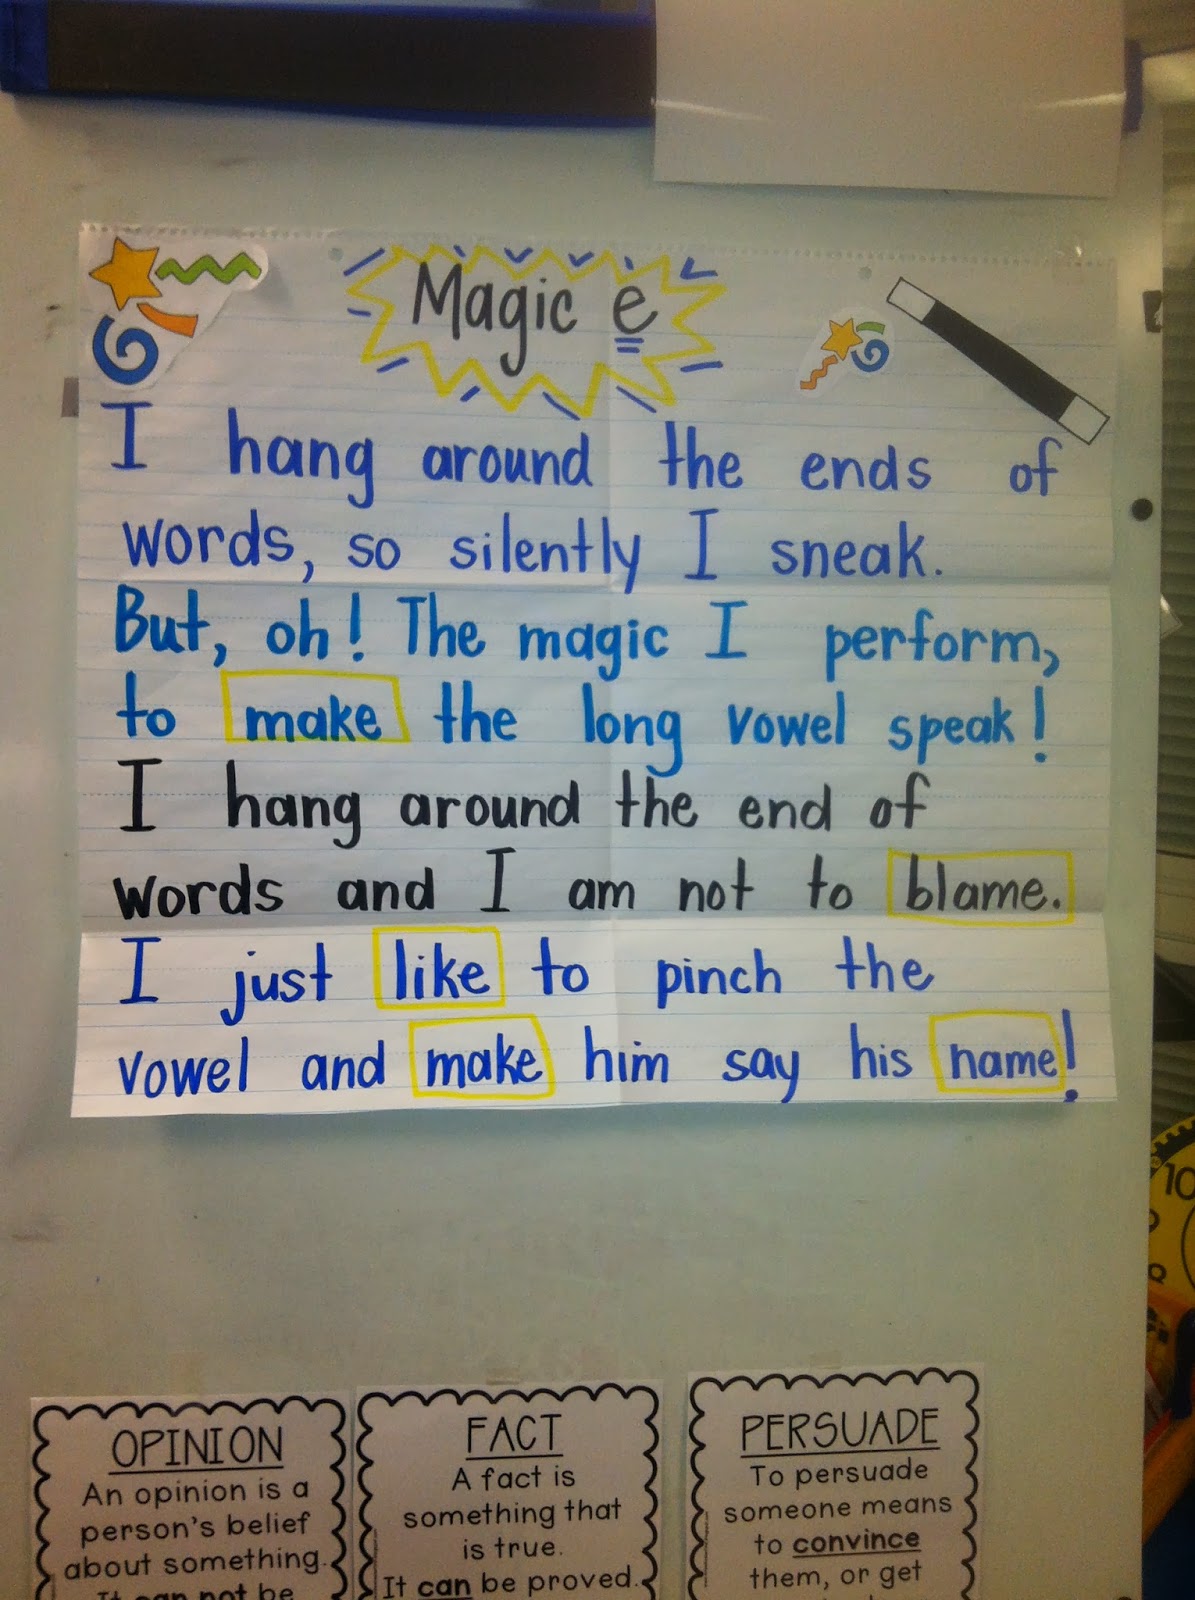 Magic e
I hang around the ends of
words, so silently I sneak.
But, oh! The magic I perform,
to make the long vowel speak!
I hang around the end of
words and I am not to blame.
I just like to pinch the
vowel and make him say his name!
10
OPINION
An opinion is a
person's belief
about something.
It can not be
FACT
A fact is
something that
is true.
It can be proved.
PERSUADE
To persuade
someone means
to convince
them, or get